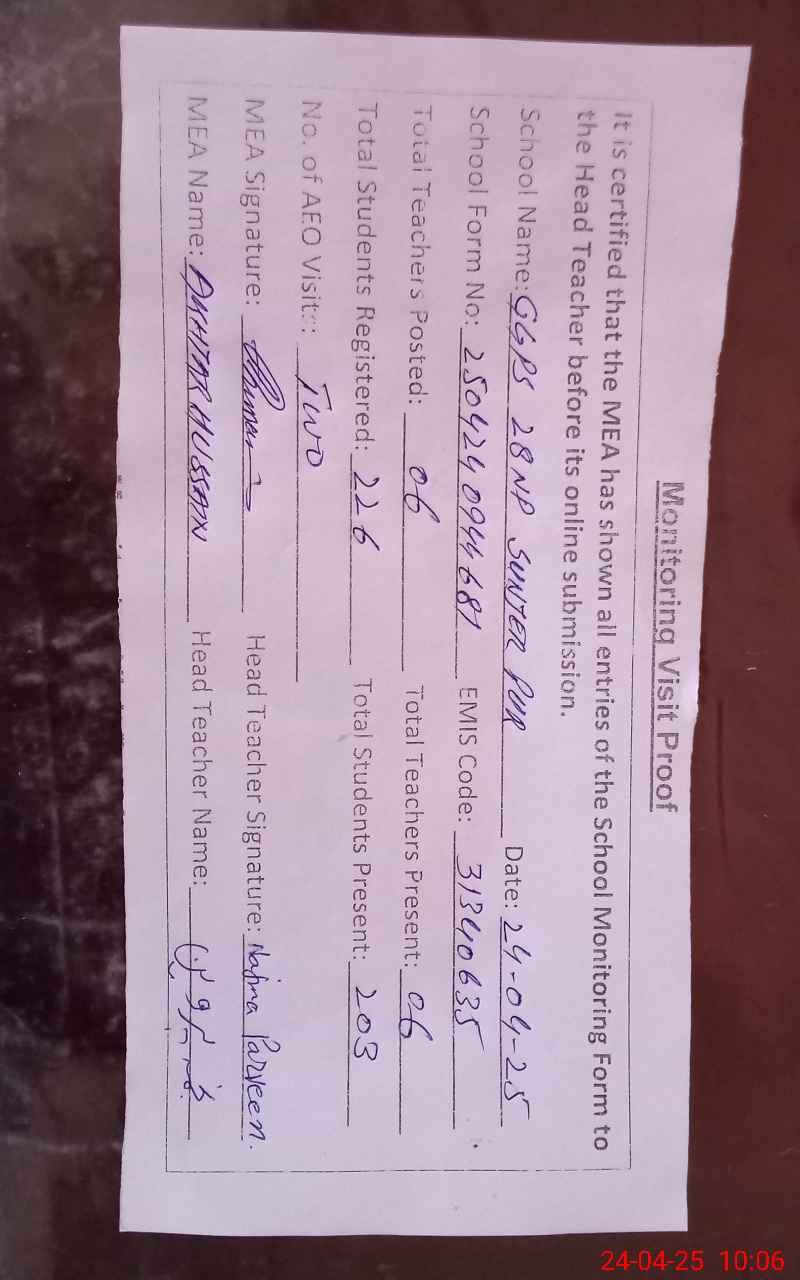 Monitoring Visit Proof
It is certified that the MEA has shown all entries of the School Monitoring Form to
the Head Teacher before its online submission.
School Name: GGPS 28 NP SUNJER PUR Date: 24-04-25
School Form No: 250424094468 EMIS Code: 31340635
Total Teachers Posted: 06 Total Teachers Present: 06
Total Students Registered: 226 Total Students Present: 203
No. of AEO Visits: TWO
MEA Signature: Head Teacher Signature: Najma Parveen.
MEA Name: AKHTAR HUSSAIN Head Teacher Name:
24-04-25 10:06